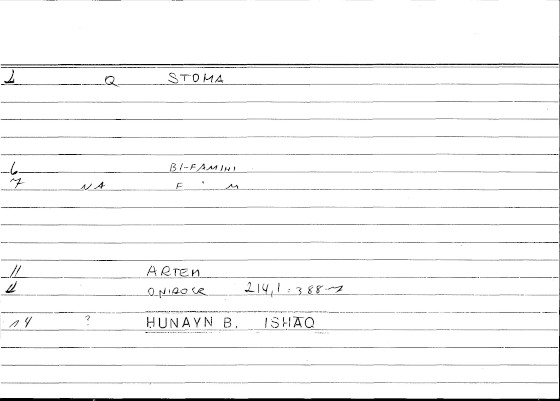 1 Q STOMA
6 BI-FAMIHI
7 NA F M
11 ARTEM
11 ONIROCR 214,1 : 388-7
14 ? HUNAYN B. ISHAQ